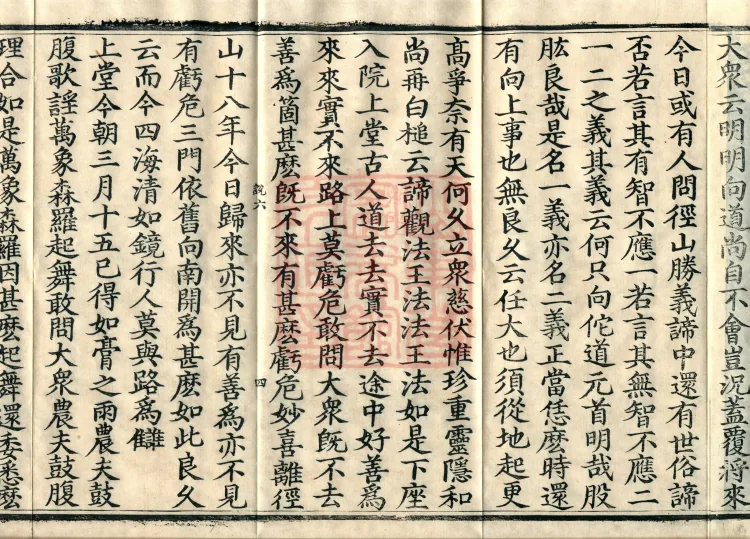 大衆云明明向道尚自不會豈況蓋覆將來
今日或有人問徑山勝義諦中還有世俗諦
否若言其有智不應一若言其無智不應二
一二之義其義云何只向佗道元首明哉股
肱良哉是名一義亦名二義正當恁麽時還
有向上事也無良久云任大也須從地起更
髙爭奈有天何久立衆慈伏惟珍重靈隱和
尚再白槌云諦觀法王法法王法如是下座
入院上堂古人道去去實不去途中好善爲
來來實不來路上莫虧危敢問大衆旣不去
善爲箇甚麽旣不來有甚麽虧危妙喜離徑
山十八年今日歸來亦不見有善爲亦不見
有虧危三門依舊向南開爲甚麽如此良久
云而今四海清如鏡行人莫與路爲讎
上堂今朝三月十五已得如膏之雨農夫鼓
腹歌謡萬象森羅起舞敢問大衆農夫鼓腹
理合如是萬象森羅因甚麽起舞還委悉麽